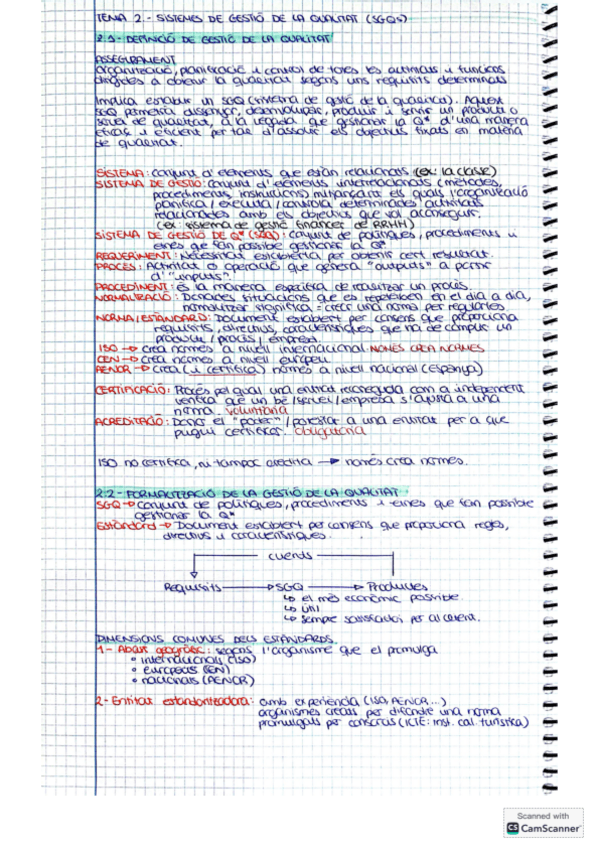 TEMA 2.- SISTEMES DE GESTIÓ DE LA QUALITAT (SGQs)
2.1- DEFINICIÓ DE GESTIÓ DE LA QUALITAT
ASSEGURAMENT
organització, planificació i control de totes les activitats i funcions
dirigides a obtenir la qualitat segons uns requisits determinats
Implica establir un SGQ (sistema de gestió de la qualitat). Aquest
SGQ permetrà dissenyar, desenvolupar, produir i servir un producte o
servei de qualitat, a la vegada que gestionar la Q* d'una manera
eficaç i eficient per tal d'assolir els objectius fixats en matèria
de qualitat.
SISTEMA: conjunt d'elements que estàn relacionats (ex: la classe)
SISTEMA DE GESTIÓ: conjunt d'elements interrelacionats (mètodes,
procediments, instruccions) mitjançant els quals l'organització
planifica / executa / controla determinades activitats
relacionades amb els objectius que vol aconseguir.
(ex: sistema de gestió financer, de RRHH)
SISTEMA DE GESTIÓ DE Q* (SGQ): conjunt de polítiques, procediments i
eines que fan possible gestionar la Q*
REQUERIMENT: Necessitat establerta per obtenir cert resultat.
PROCÉS: Activitat o operació que genera "outputs" a partir
d'"inputs".
PROCEDIMENT: és la manera específica de realitzar un procés.
NORMALITZACIÓ: Donades situacions que es repeteixen en el dia a dia,
normalitzar significa = crear una norma per regular-les
NORMA/ESTÀNDARD: Document establert per consens que proporciona
requisits, directrius, característiques que ha de complir un
producte / procés / empresa.
ISO → crea normes a nivell internacional. NOMÉS CREA NORMES
CEN → crea normes a nivell europeu
AENOR → crea (i certifica) normes a nivell nacional (Espanya)
CERTIFICACIÓ: Procés pel qual una entitat reconeguda com a independent
verifica que un bé/servei/empresa s'ajusta a una
norma. Voluntària
ACREDITACIÓ: Donar el "poder"/potestat a una entitat per a que
pugui certificar. Obligatòria
ISO no certifica, ni tampoc acredita → només crea normes.
2.2- FORMALITZACIÓ DE LA GESTIÓ DE LA QUALITAT
SGQ → Conjunt de polítiques, procediments i eines que fan possible
gestionar la Q*
Estàndard → Document establert per consens que proporciona regles,
directrius o característiques.
clients
Requisits → SGQ → Productes
↳ el més econòmic possible.
↳ Útil
↳ sempre satisfactori per al client.
DIMENSIONS COMUNES DELS ESTÀNDARDS.
1- Abast geogràfic: segons l'organisme que el promulga
• internacionals (ISO)
• europees (EN)
• nacionals (AENOR)
2- Entitat estandarditzadora: amb experiència (ISO, AENOR...)
organismes creats per difondre una norma
promulgats per consens (ICTE: inst. cal. turística)
Scanned with
CS CamScanner